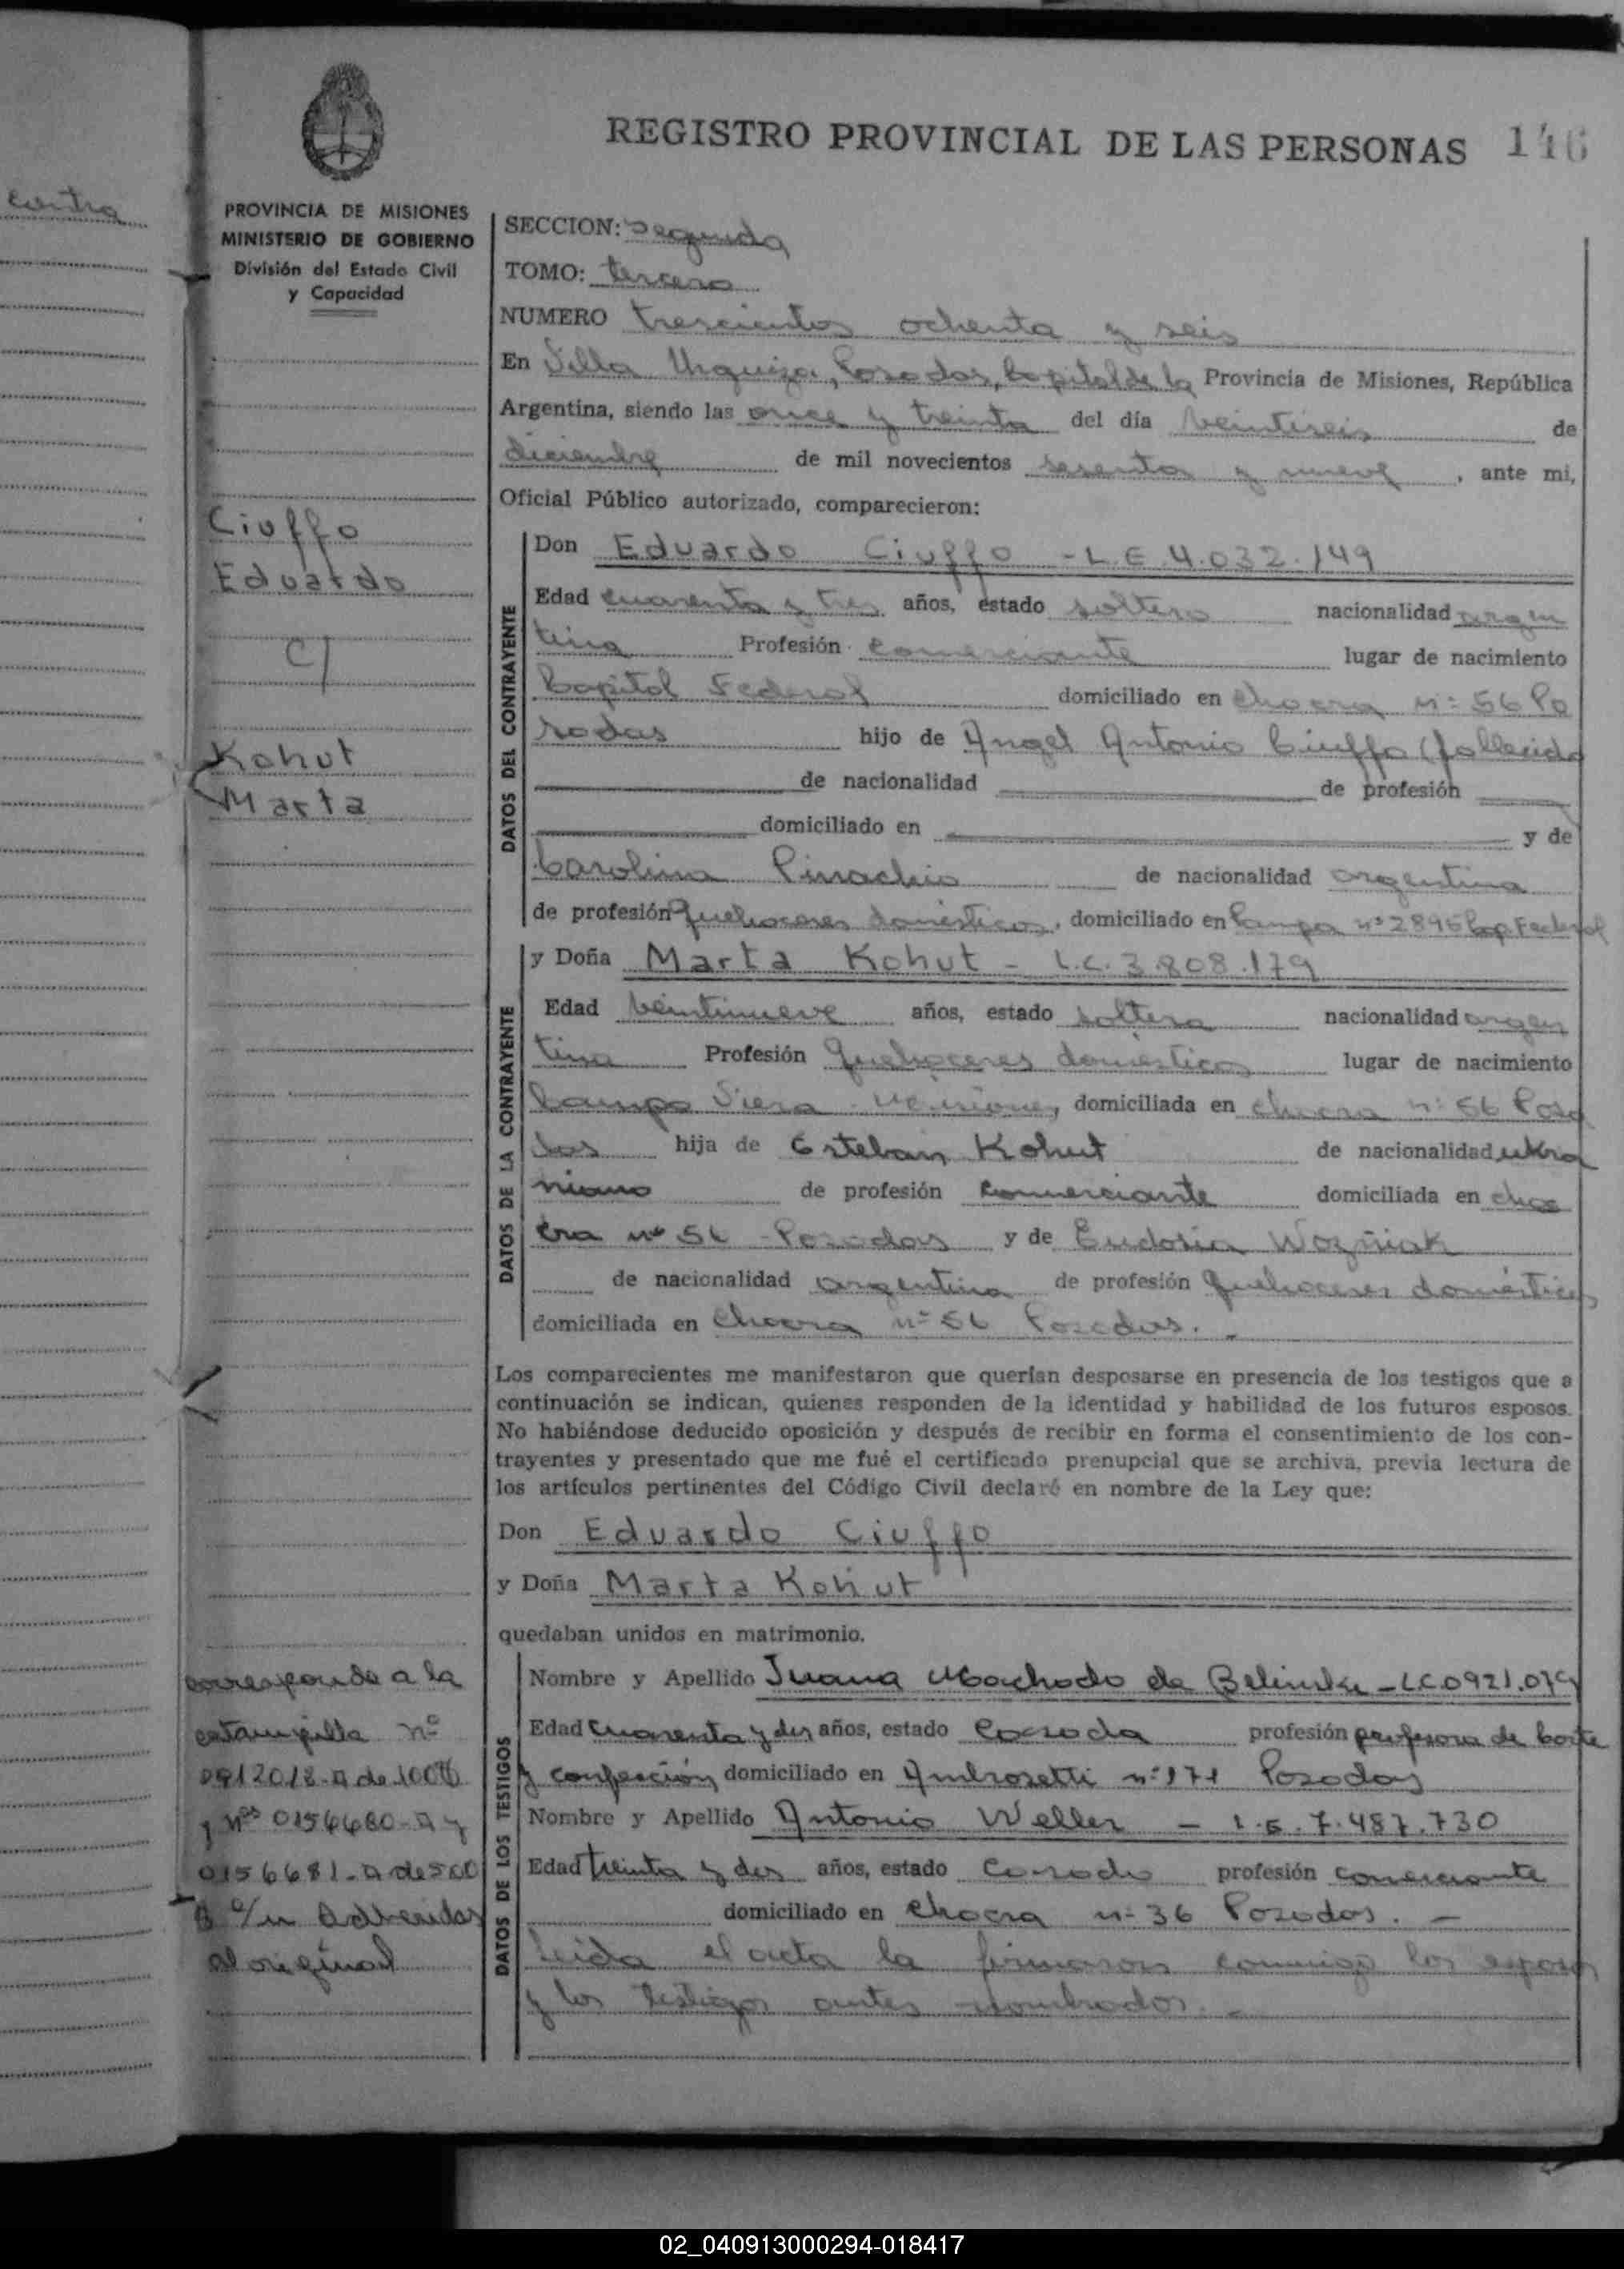 contra
REGISTRO PROVINCIAL DE LAS PERSONAS 146
PROVINCIA DE MISIONES
MINISTERIO DE GOBIERNO
División del Estado Civil
y Capacidad
Ciuffo
Eduardo
c/
Kohut
Marta
corresponde a la
estampilla nº
0912018-A de 100
y nos 0156680-A y
0156681-A de 500
$ c/u adheridas
al original
SECCION: segunda
TOMO: tercero
NUMERO trescientos ochenta y seis
En Villa Urquiza, Posadas, Capital de la Provincia de Misiones, República
Argentina, siendo las once y treinta del día veintiseis de
diciembre de mil novecientos sesenta y nueve, ante mi,
Oficial Público autorizado, comparecieron:
DATOS DEL CONTRAYENTE
Don Eduardo Ciuffo - L.E. 4.032.149
Edad cuarenta y tres años, estado soltero nacionalidad argen
tina Profesión comerciante lugar de nacimiento
Capital Federal domiciliado en chacra nº 56 Po
sadas hijo de Angel Antonio Ciuffo (fallecido
de nacionalidad de profesión
domiciliado en y de
Carolina de nacionalidad argentina
de profesión quehaceres domésticos, domiciliado en Pampa nº 2895 Cap Federal
DATOS DE LA CONTRAYENTE
y Doña Marta Kohut - L.C. 3.808.179
Edad veintinueve años, estado soltera nacionalidad argen
tina Profesión quehaceres domésticos lugar de nacimiento
Campo Viera - Misiones, domiciliada en chacra nº 56 Posa
das hija de Esteban Kohut de nacionalidad ukra
niano de profesión comerciante domiciliada en cha
cra nº 56 - Posadas y de Eudosia Wozniak
de nacionalidad argentina de profesión quehaceres domésticos
domiciliada en chacra nº 56 Posadas. -
Los comparecientes me manifestaron que querían desposarse en presencia de los testigos que a
continuación se indican, quienes responden de la identidad y habilidad de los futuros esposos.
No habiéndose deducido oposición y después de recibir en forma el consentimiento de los con-
trayentes y presentado que me fué el certificado prenupcial que se archiva, previa lectura de
los artículos pertinentes del Código Civil declaré en nombre de la Ley que:
Don Eduardo Ciuffo
y Doña Marta Kohut
quedaban unidos en matrimonio.
DATOS DE LOS TESTIGOS
Nombre y Apellido Juana Machado de - L.C.0921.079
Edad cuarenta y dos años, estado casada profesión profesora de corte
y confección domiciliado en Ambrosetti nº 171 Posadas
Nombre y Apellido Antonio Weller - L.E. 7.487.730
Edad treinta y dos años, estado casado profesión comerciante
domiciliado en chacra nº 36 Posadas. -
Leída el acta la firmaron conmigo los esposos
y los testigos antes nombrados. -
02_040913000294-018417